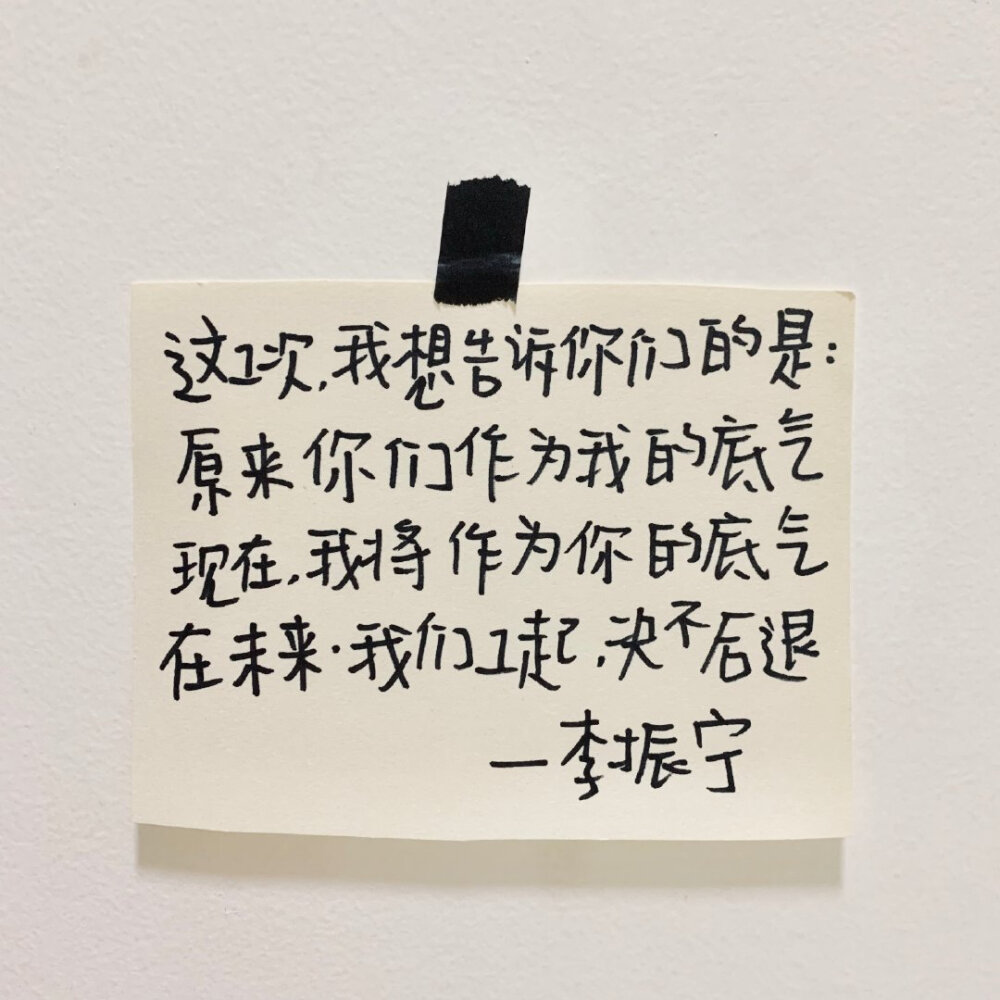 这一次,我想告诉你们的是:
原来你们作为我的底气
现在,我将作为你的底气
在未来·我们一起,决不后退
—李振宁